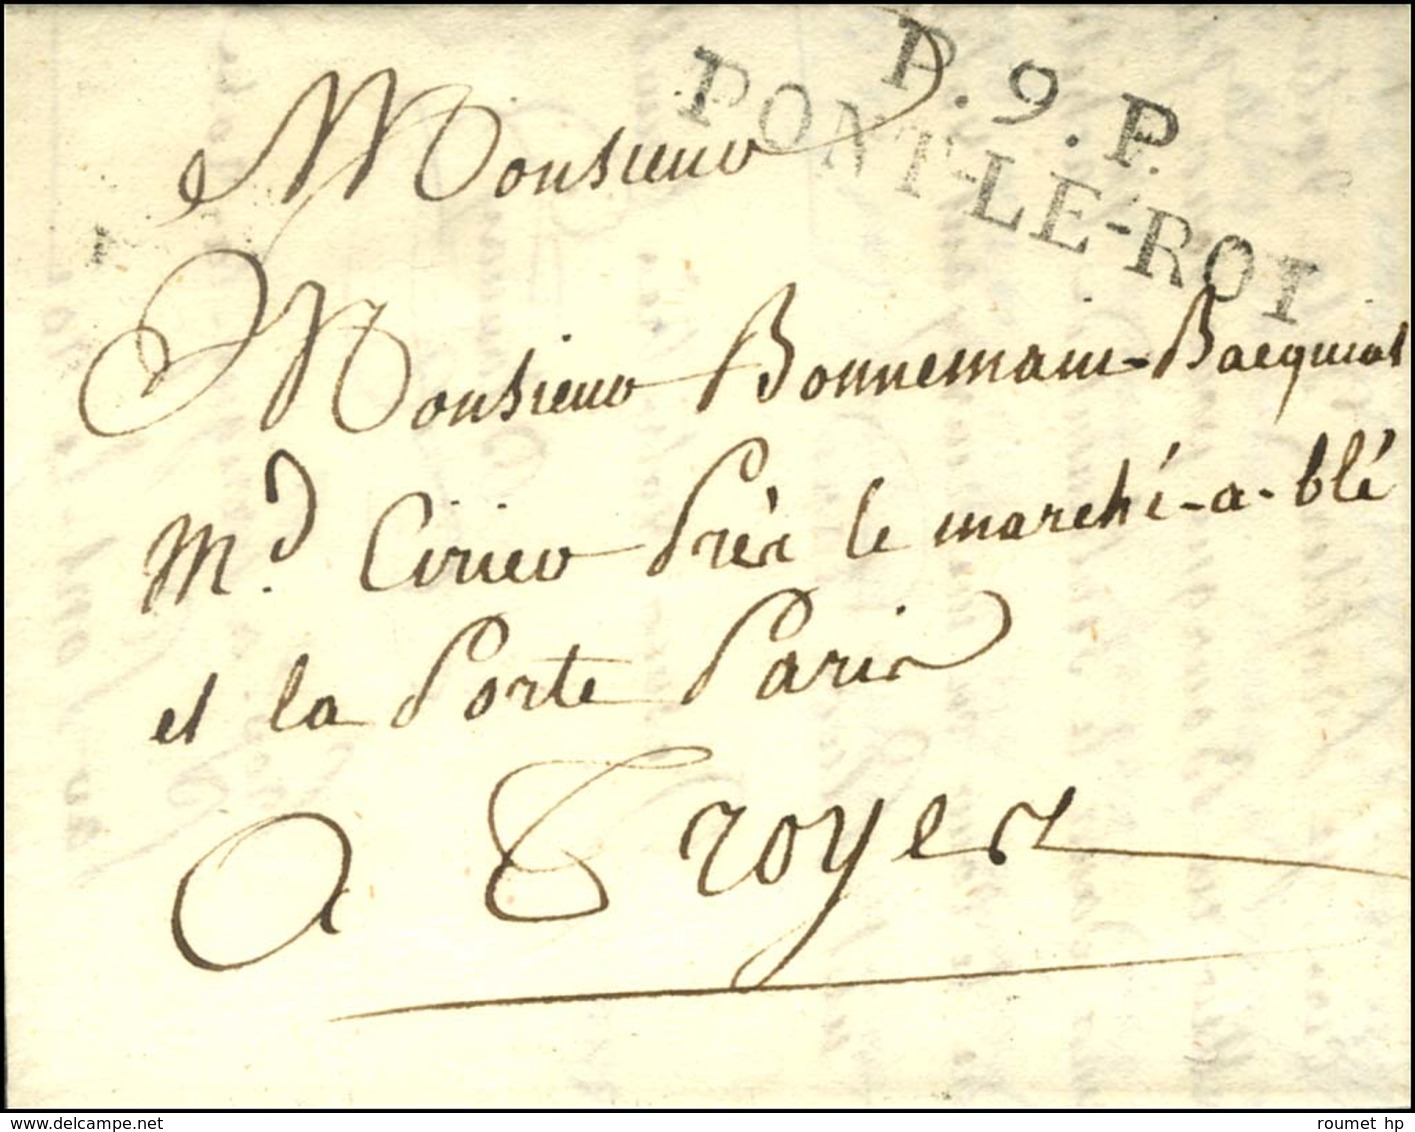 P.9.P.
PONT-LE-ROI
Monsieur
Monsieur Bonnemain-Bacquias
Md. Cirier Près le marché-a-blé
et la Porte Paris
A Troyes
roumet hp